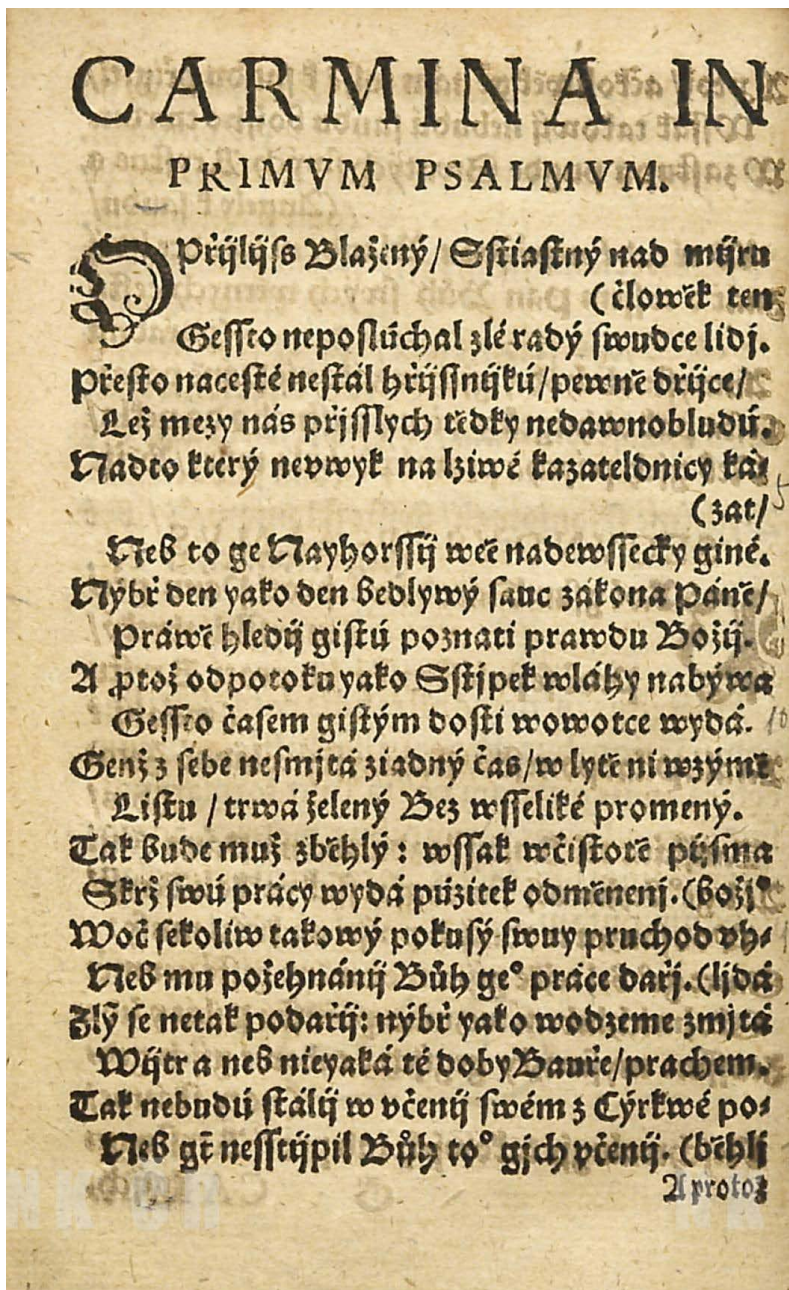 CARMINA IN
PRIMVM PSALMVM.
OPřijlijſs Blažený/ Sſtiaſtný nad mijru
(člowěk ten
Geſſto nepoſlúchal zlé radý ſwudce lidj.
Přeſto naceſtě neſtál hřijſſnijkú/pewně držijce/
Lež mezy nás přjſſlych tědky nedawnobludú.
Nadto který nevwyk na lziwé kazateldnicy ká⸗
(zat/
Neb to ge Nayhorſſij weč nadewſſecky giné.
Nýbř den yako den bedlywý ſauc zákona Páně/
Práwě hledij giſtú poznati prawdu Božij.
A ꝓtož odpotoku yako Sſtjpek wláhy nabýwa
Geſſto časem giſtým doſti wowotce wydá.
Genž z ſebe neſmjtá ziadný čas/w lytě ni wzýmě
Liſtu / trwá želený Bez wſſeliké promený.
Tak bude muž zběhlý : wſſak wčiſtotě pijſma
Skrž ſwú prácy wydá púzitek odměnenj.(božjº
Woč ſekoliw takowý pokuſý ſwuy pruchod vh⸗
Neb mu požehnánij Bůh geº práce dařj.(ljdá
Zlý ſe netak podařij: nýbř yako wodzeme zmjtá
Wijtr a neb nieyaká té doby Bauře/prachem.
Tak nebudú ſtálij w včenij ſwém z Cýrkwé po⸗
Neb gt̃ neſſtijpil Bůh toº gjch včenij. (běhlj
A protož